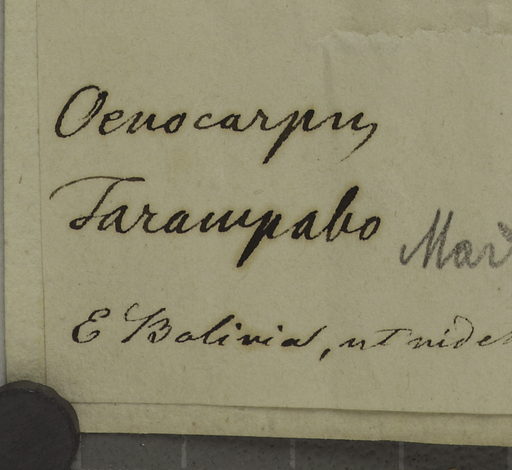 Oenocarpus
Tarampabo Mart
E Bolivia, ut videt